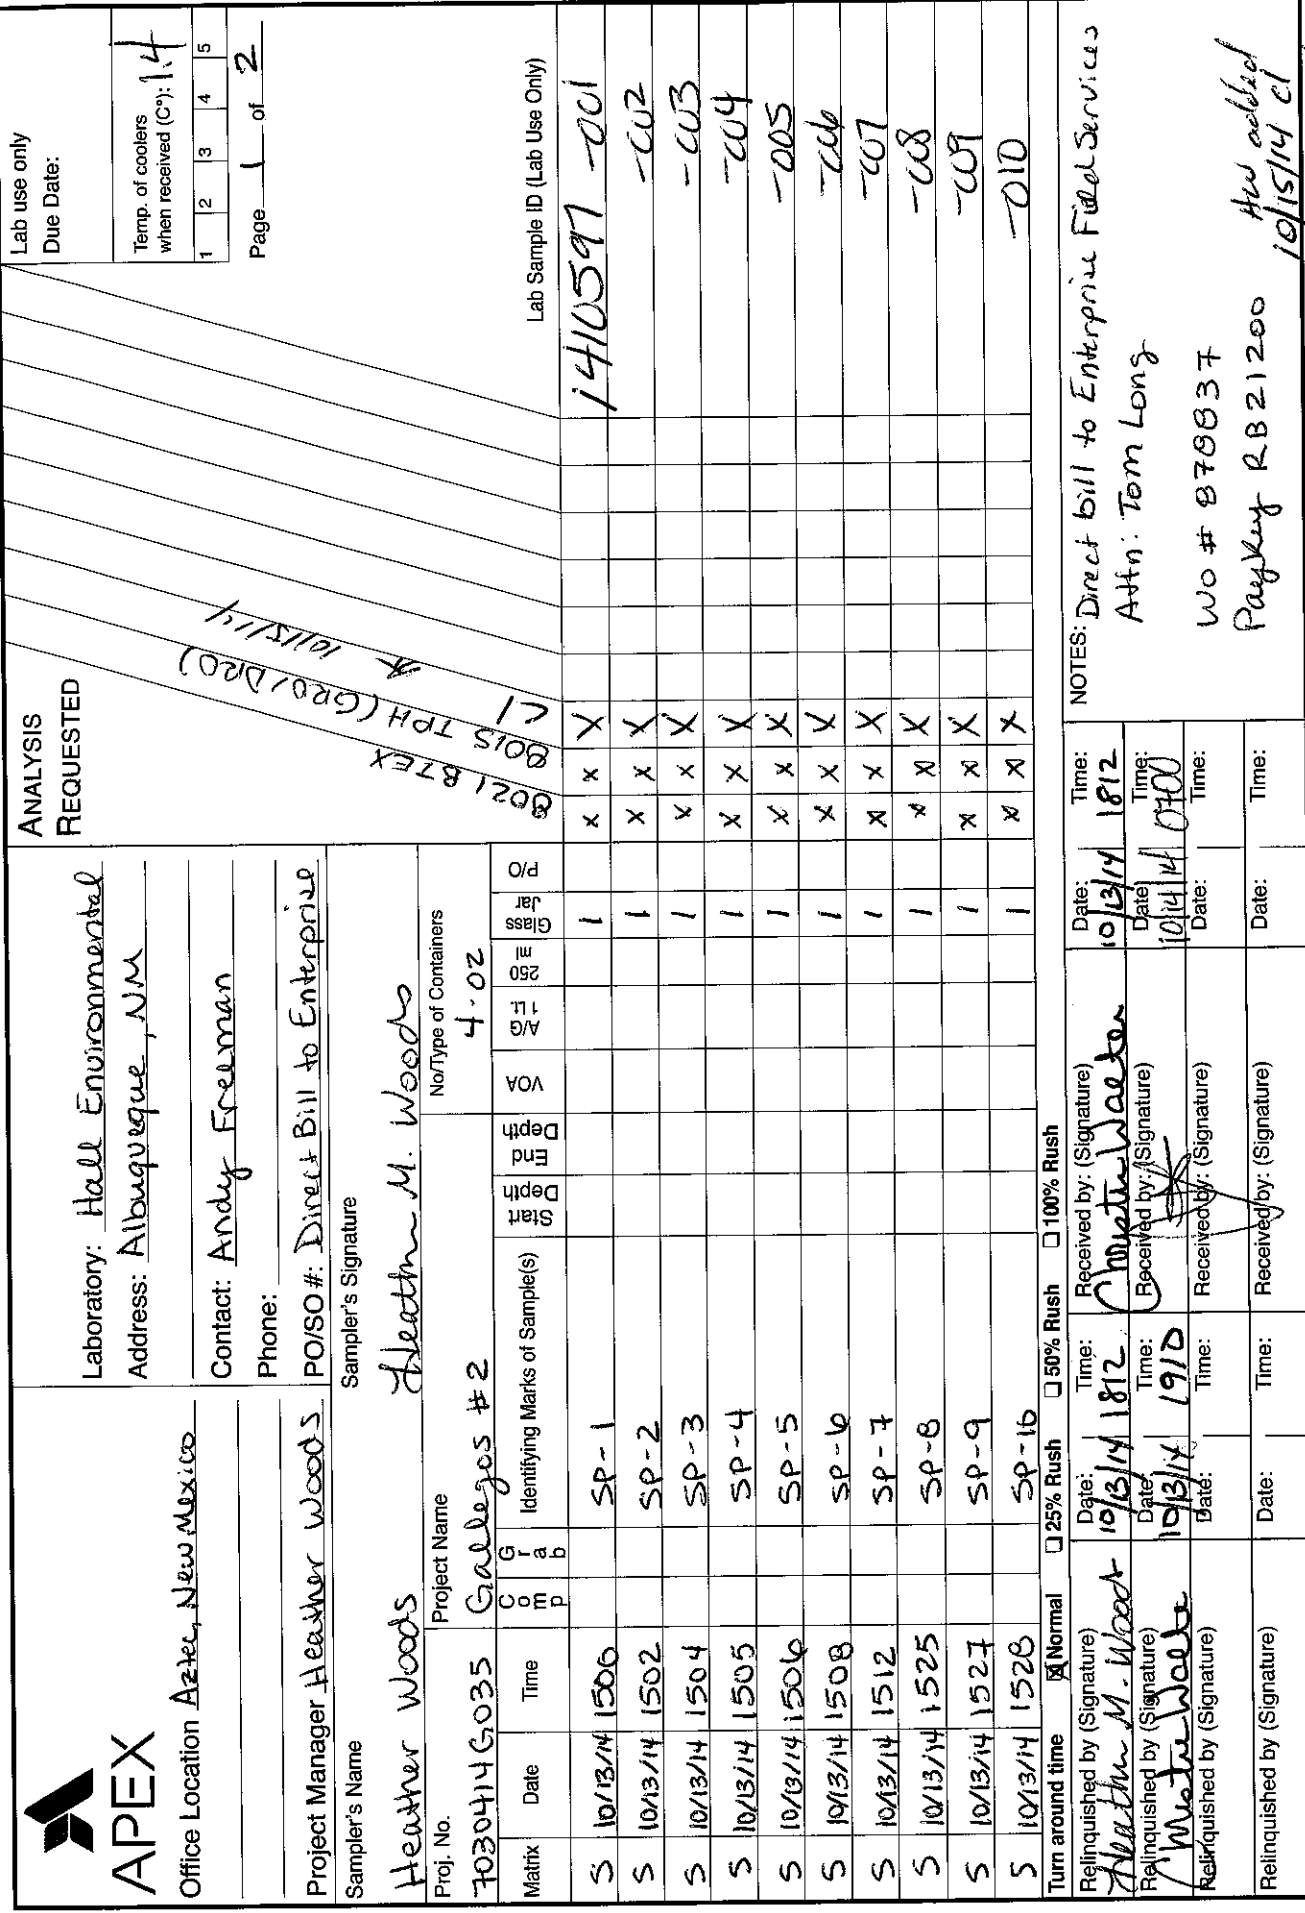 APEX
Office Location Aztec, New Mexico
Project Manager Heather Woods
Laboratory: Hall Environmental
Address: Albuqueque, NM
Contact: Andy Freeman
Phone:
PO/SO #: Direct Bill to Enterprise
ANALYSIS
REQUESTED
8021 BTEX
8015 TPH (GRO/DRO)
Cl * 10/15/14
Lab use only
Due Date:
Temp. of coolers
when received (C°): 1.4
1 2 3 4 5
Page 1 of 2
Sampler's Name
Heather Woods
Sampler's Signature
Heather M. Woods
Proj. No.
7030414G035
Project Name
Gallegos #2
No/Type of Containers
4-oz
Matrix Date Time Comp Grab Identifying Marks of Sample(s) Start Depth End Depth VOA A/G 1 Lt. 250 ml Glass Jar P/O Lab Sample ID (Lab Use Only)
S 10/13/14 1500 SP-1 1 X X X 1410597 -001
S 10/13/14 1502 SP-2 1 X X X -002
S 10/13/14 1504 SP-3 1 X X X -003
S 10/13/14 1505 SP-4 1 X X X -004
S 10/13/14 1506 SP-5 1 X X X -005
S 10/13/14 1508 SP-6 1 X X X -006
S 10/13/14 1512 SP-7 1 X X X -007
S 10/13/14 1525 SP-8 1 X X X -008
S 10/13/14 1527 SP-9 1 X X X -009
S 10/13/14 1528 SP-10 1 X X X -010
Turn around time ☒ Normal ☐ 25% Rush ☐ 50% Rush ☐ 100% Rush
Relinquished by (Signature) Date: Time: Received by: (Signature) Date: Time:
Heather M. Woods 10/13/14 1812 Christine Waeter 10/13/14 1812
Relinquished by (Signature) Date: Time: Received by: (Signature) Date: Time:
Christine Waeter 10/13/14 1910 10/14/14 0700
Relinquished by (Signature) Date: Time: Received by: (Signature) Date: Time:
Relinquished by (Signature) Date: Time: Received by: (Signature) Date: Time:
NOTES: Direct bill to Enterprise Field Services
Attn: Tom Long
WO # 878837
PayKey RB21200
HW added
10/15/14 Cl